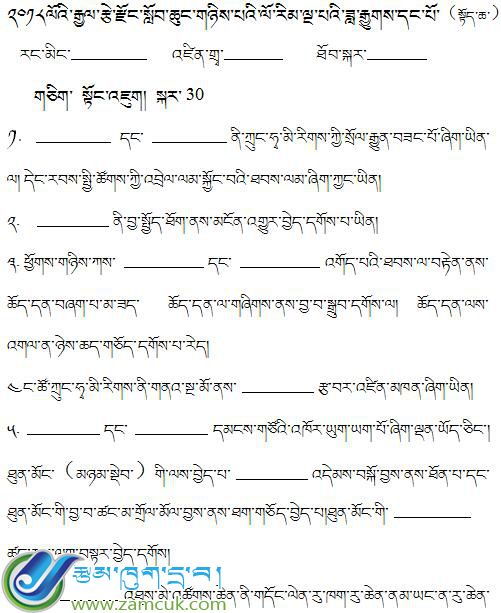 ༢༠༡༨ལོའི་རྒྱལ་རྩེ་རྫོང་སློབ་ཆུང་གཉིས་པའི་ལོ་རིམ་ལྔ་པའི་ཟླ་རྒྱུགས་དང་པོ་ (སྟོད་ཆ་)
རང་མིང་__________ འཛིན་གྲྭ་__________ ཐོབ་སྐར་__________
གཅིག་ སྟོང་འཇུག། སྐར་ 30
༡. __________ དང་ __________ ནི་ཀྲུང་ཧྭ་མི་རིགས་ཀྱི་སྲོལ་རྒྱུན་བཟང་པོ་ཞིག་ཡིན་
ལ། དེང་རབས་སྤྱི་ཚོགས་ཀྱི་འབྲེལ་ལམ་སྐྱོང་བའི་ཐབས་ལམ་ཞིག་ཀྱང་ཡིན།
༢. __________ ནི་བྱ་སྤྱོད་ཐོག་ནས་མངོན་འགྱུར་བྱེད་དགོས་པ་ཡིན།
༣. ཕྱོགས་གཉིས་ཀས་ __________ དང་ __________ འགོད་པའི་ཐབས་ལ་བརྟེན་ནས་
ཆོད་དན་བཞག་པ་མ་ཟད་ ཆོད་དན་ལ་གཞིགས་ནས་བྱ་བ་སྒྲུབ་དགོས་ལ། ཆོད་དན་ལས་
འགལ་ན་ཉེས་ཆད་གཅོད་དགོས་པ་རེད།
༤ང་ཚོ་ཀྲུང་ཧྭ་མི་རིགས་ནི་གནའ་སྔ་མོ་ནས་ __________ རྩ་བར་འཛིན་མཁན་ཞིག་ཡིན།
༥. __________ དང་ __________ དམངས་གཙོའི་འཁོར་ཡུག་ཡག་པོ་ཞིག་ལྡན་ཡོད་ཅིང་།
ཐུན་མོང་ (མཉམ་སྡེབ་) གི་ལས་བྱེད་པ་ __________ འདེམས་བསྐོ་བྱས་ནས་ཐོན་པ་དང་
ཐུན་མོང་གི་བྱ་བ་ཚང་མ་གྲོལ་མོལ་བྱས་ནས་ཐག་གཅོད་བྱེད་པ།ཐུན་མོང་གི་ __________
ལག་བསྟར་བྱེད་དགོས།
__________ གི་དོང་ལེན་རུ་ཁག་རུ་ཆེན་ནམ་ཡང་ན་རུ་ཆེན་
རྩམ་ཁུག་དྲ་བ།
www.zamcuk.com